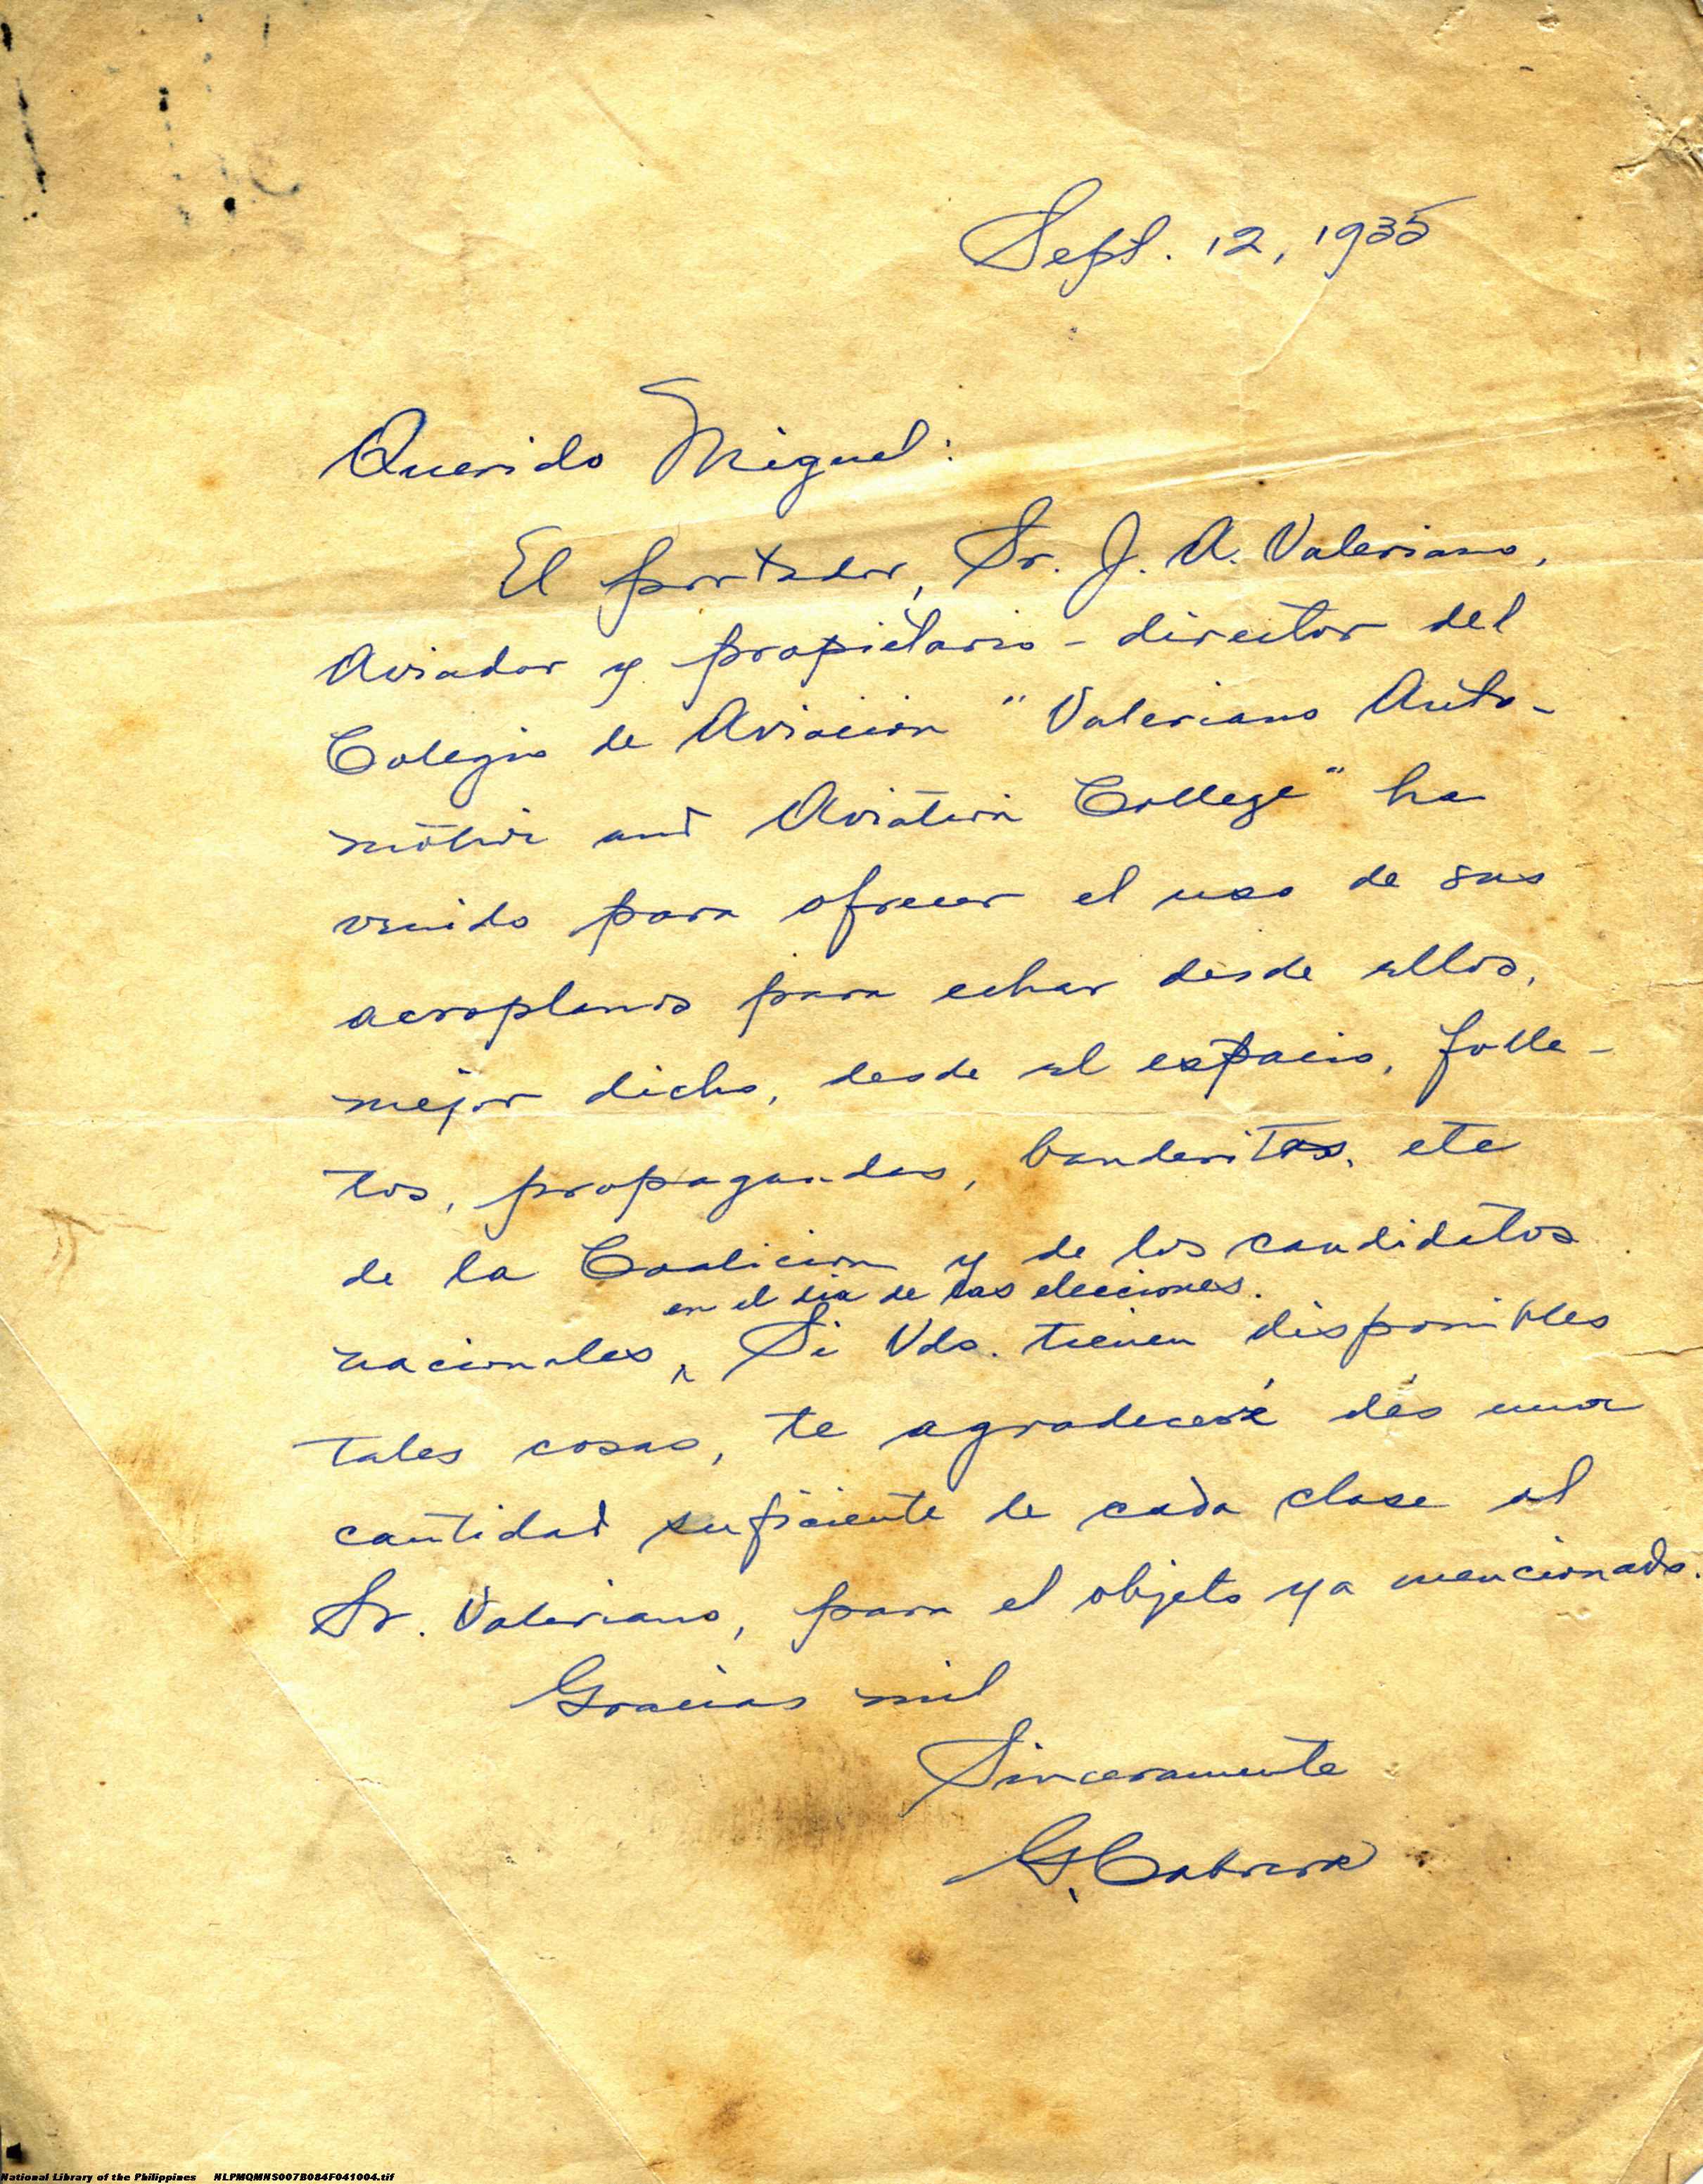 Sept. 12, 1935
Querido Miguel:
El portador, Sr. J. A. Valeriano,
Aviador y propietario - director del
Colegio de Aviacion "Valeriano Auto-
motive and Aviation College" ha
venido para ofrecer el uso de sus
aeroplanos para echar desde ellos,
mejor dicho, desde el espacio, folle-
tos, propagandas, banderitas, etc
de la Coalicion y de los candidatos
en el dia de las elecciones.
nacionales, Si Vds. tienen disponibles
tales cosas, te agradeceré dés una
cantidad suficiente de cada clase al
Sr. Valeriano, para el objeto ya mencionado.
Gracias mil
Sinceramente
G. Cabrera
National Library of the Philippines NLPMQMNS007B084F041004.tif